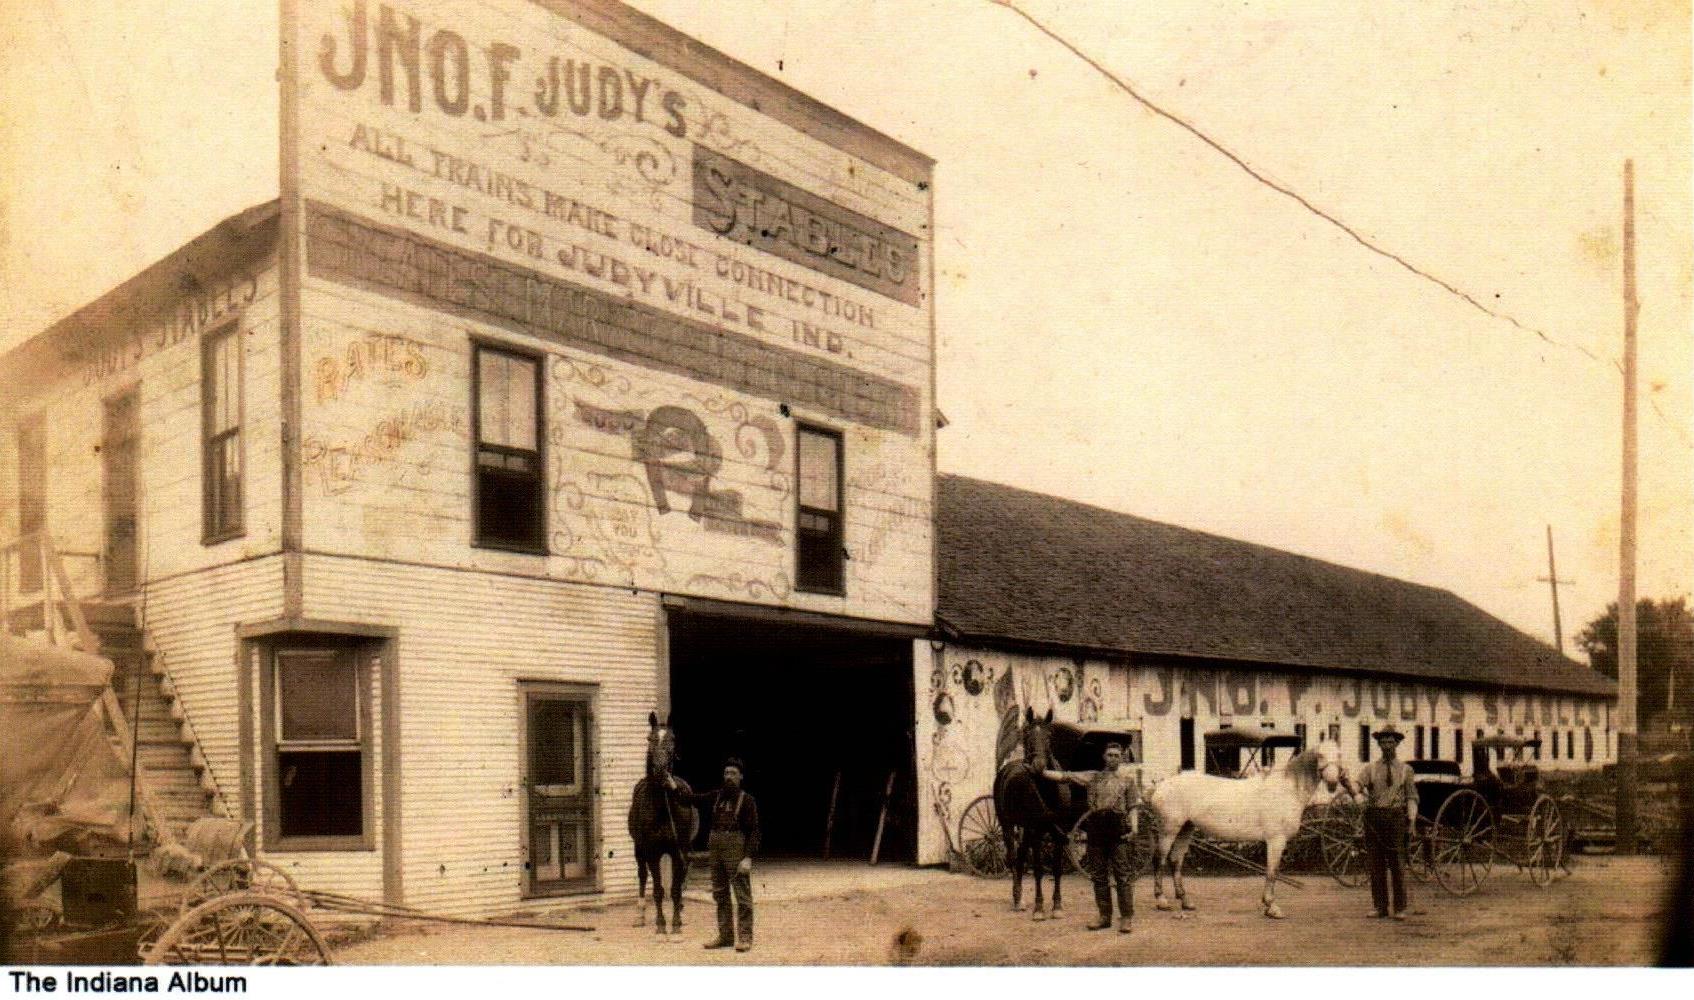 JNO. F. JUDY'S
STABLES
ALL TRAINS MAKE CLOSE CONNECTION
HERE FOR JUDYVILLE IND.
RATES
REASONABLE
JUDY'S STABLES
YOU
JNO. F. JUDY'S STABLES
The Indiana Album